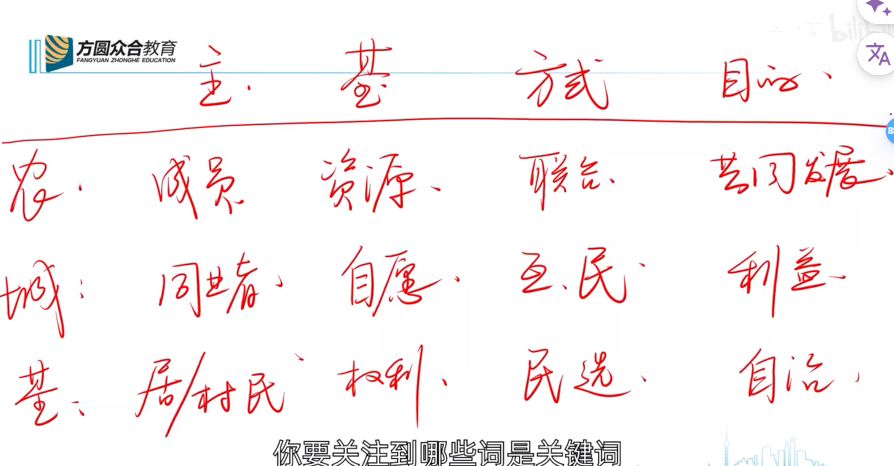 方圆众合教育
FANGYUAN ZHONGHE EDUCATION
bilibili
主. 基. 方式 目的.
农. 成员 资源. 联合. 共同发展.
城: 同业者. 自愿. 互.民. 利益.
基: 居/村民 权利. 民选. 自治.
你要关注到哪些词是关键词